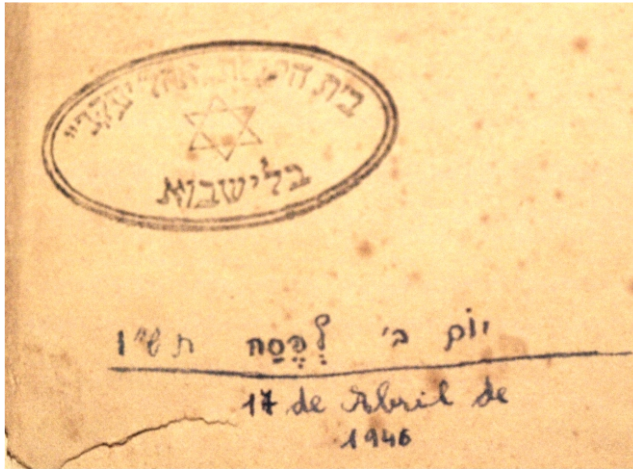 בית הכנסת „אהל יעקב"
בלישבוא
יוֹם ב' לְפֶּסַח תש"ו
17 de Abril de
1946